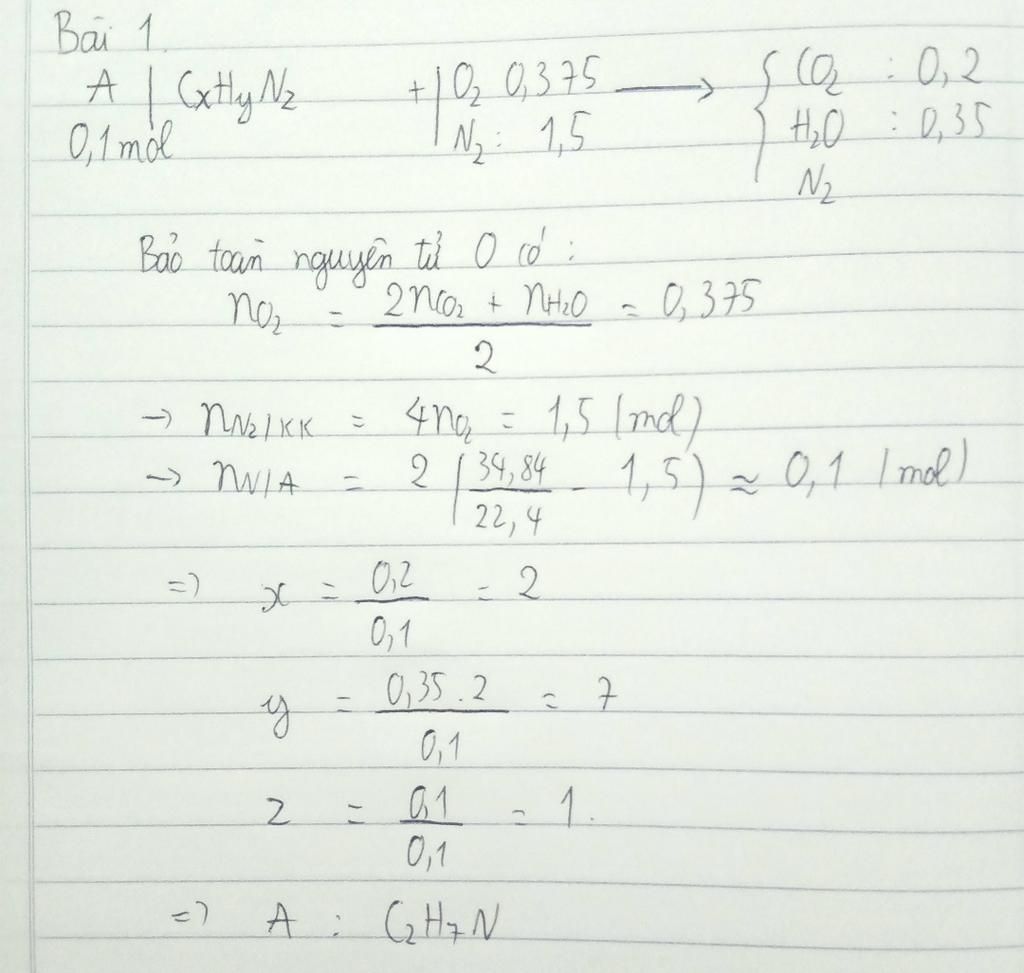 Bài 1.
A | CxHyNz + | O2 0,375 ⟶ { CO2 : 0,2
0,1 mol | N2 : 1,5 H2O : 0,35
N2
Bảo toàn nguyên tử O có :
nO2 = (2nCO2 + nH2O) / 2 = 0,375
→ nN2/KK = 4nO2 = 1,5 (mol)
→ nN/A = 2 (34,84 / 22,4 - 1,5) ≈ 0,1 (mol)
=> x = 0,2 / 0,1 = 2
y = 0,35 . 2 / 0,1 = 7
z = 0,1 / 0,1 = 1.
=> A : C2H7N